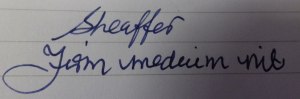 Sheaffer
Firm medium nib